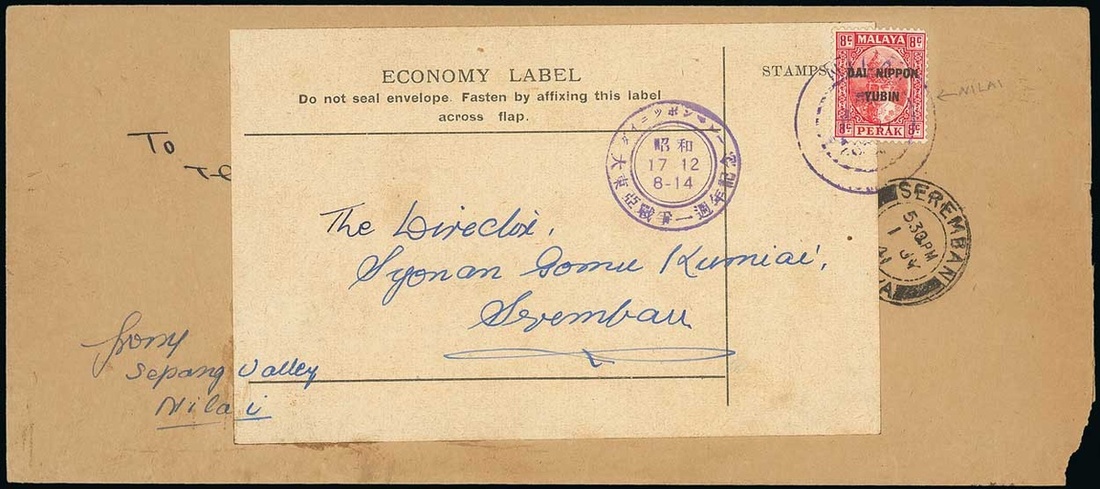 ECONOMY LABEL
Do not seal envelope. Fasten by affixing this label
across flap.
STAMPS
8c MALAYA 8c
DAI NIPPON
YUBIN
8c PERAK 8c
← NILAI
To
昭和
17 12
8-14
大東亞戰爭一週年記念
SEREMBAN
530PM
1
41
The Director,
Syonan Gomu Kumiai,
Seremban
from
Sepang Valley
Nilai